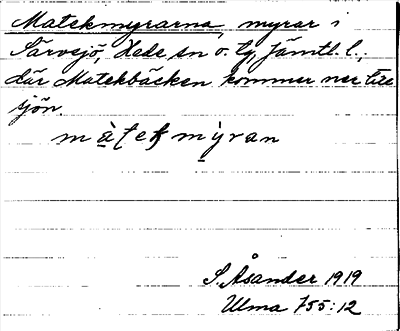 Matekmyrarna, myrar i
Tärvsjö, Hede sn o. tg, Jämtl. l.,
där Matekbäcken kommer ner till
sjön.
màtek mỳran
S. Åsander 1919
Ulma 755:12